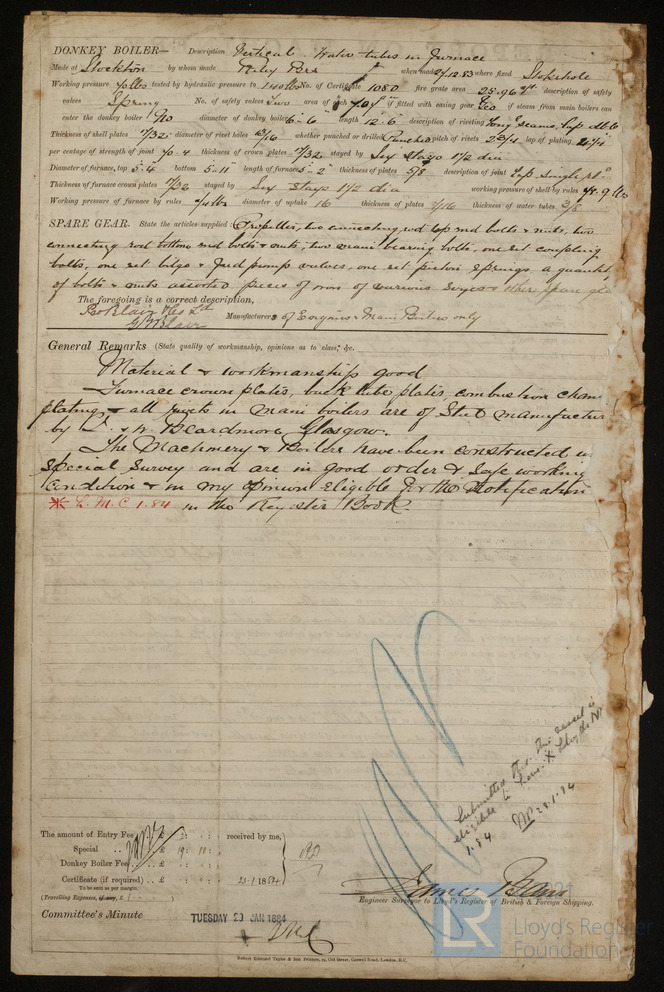 DONKEY BOILER— Description Vertical Water tubes in furnace
Made at Stockton by whom made Riley Bros when made 27.12.83 where fixed Stokehole
Working pressure tested by hydraulic pressure to 140 lbs No. of Certificate 1080 fire grate area description of safety
valves Spring No. of safety valves Two area of each if fitted with easing gear Yes if steam from main boilers can
enter the donkey boiler No diameter of donkey boiler 6-6 length 12-6 description of riveting Long seams, lap dble
Thickness of shell plates 17/32 diameter of rivet holes 13/16 whether punched or drilled Punched pitch of rivets lap of plating
per centage of strength of joint 70.4 thickness of crown plates 17/32 stayed by Six Stays 1 1/2 dia
Diameter of furnace, top 5-4 bottom 5-11 length of furnace 5-2 thickness of plates 5/8 description of joint Lap single
Thickness of furnace crown plates 17/32 stayed by Six Stays 1 1/2 dia working pressure of shell by rules
Working pressure of furnace by rules diameter of uptake 16 thickness of plates 7/16 thickness of water tubes 3/8
SPARE GEAR. State the articles supplied Propeller, two connecting rod top end bolts & nuts, two
connecting rod bottom end bolts & nuts, two main bearing bolts, one set coupling
bolts, one set bilge & feed pump valves, one set piston springs a quantity
of bolts & nuts assorted pieces of iron of various sizes & other spare
The foregoing is a correct description,
Blair & Co Ld
G Blair Manufacturers of Engines & Main Boilers only
General Remarks (State quality of workmanship, opinions as to class, &c.
Material & workmanship good
Furnace crown plates, back tube plates, combustion cham
plating & all rivets in main boilers are of Steel manufactur
by W. Beardmore Glasgow.
The Machinery & Boilers have been constructed
Special Survey and are in good order & safe working
condition & in my opinion eligible for the Notification
L.M.C 1.84 in the Register Book
Submitted that this vessel is
eligible to have
1.84 28.1.84
The amount of Entry Fee .. £ 2 : : received by me,
Special .. .. £ 19 : 10 :
Donkey Boiler Fee .. £ : :
Certificate (if required) .. £ : : 21.1 1884
To be sent as per margin.
(Travelling Expenses, if any, £ )
James Bain
Engineer Surveyor to Lloyd's Register of British & Foreign Shipping.
Committee's Minute
TUESDAY 29 JAN 1884
LR
Lloyd's Register
Foundation